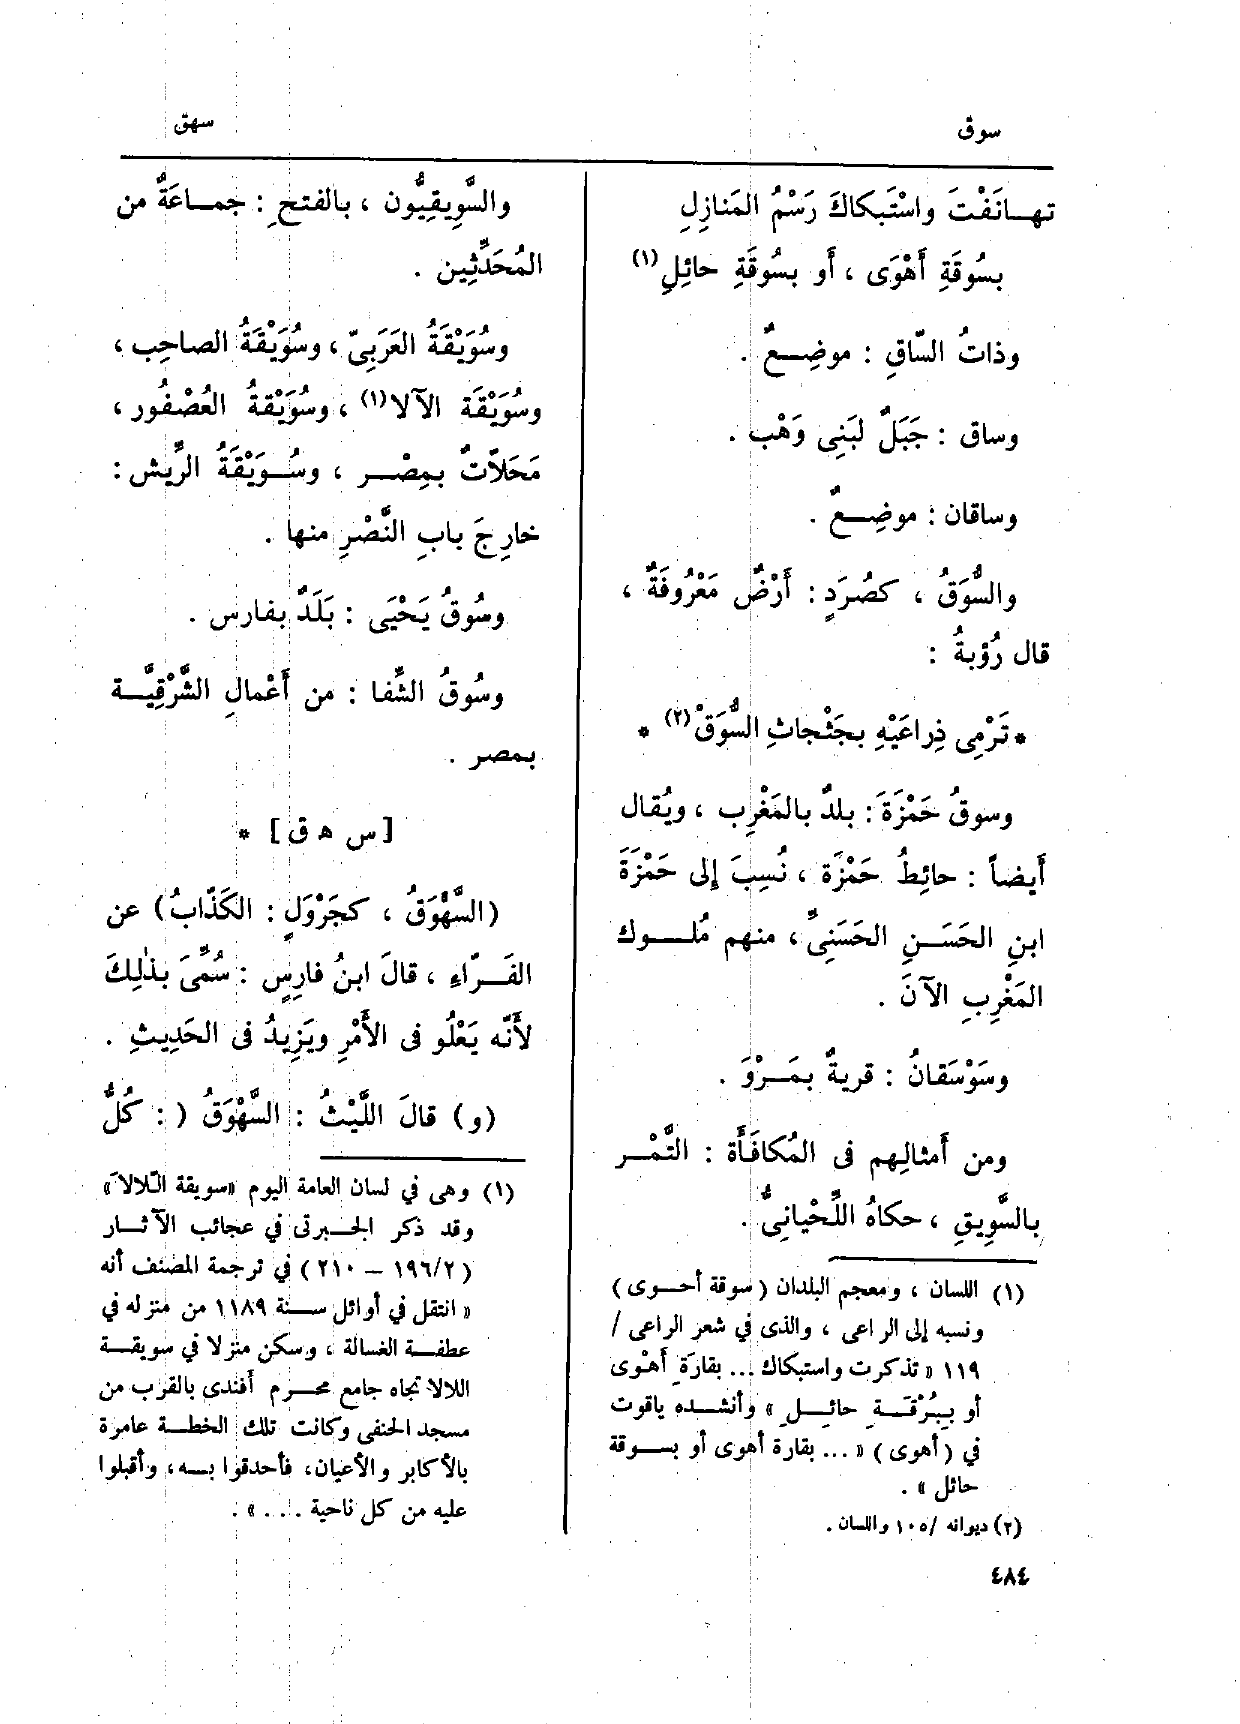 سوق
سهق
تهانَفْتَ واسْتَبكاكَ رَسْمُ المَنازِلِ
بسُوقَةِ أَهْوَى ، أَو بسُوقَةِ حائِلِ (١)
وذاتُ السّاقِ : موضِعٌ .
وساق : جَبَلٌ لبَنِى وَهْب .
وساقان : موضِعٌ .
والسُّوَقُ ، كصُرَدٍ : أَرْضٌ مَعْرُوفَةٌ ،
قال رُؤبةُ :
* تَرْمِى ذِراعَيْهِ بجَثْجاثِ السُّوَقْ (٢) *
وسوقُ حَمْزَةَ : بلدٌ بالمَغْرِب ، ويُقال
أَيضاً : حائِطُ حَمْزَة ، نُسِبَ إِلى حَمْزَةَ
ابنِ الحَسَنِ الحَسَنِىِّ ، منهم مُلوك
المَغْرِبِ الآنَ .
وسَوْسَقانُ : قريةٌ بمَرْوَ .
ومن أَمثالِهم فى المُكافَأَة : التَّمْر
بالسَّوِيقِ ، حكاهُ اللَّحْيانِىُّ .
(١) اللسان ، ومعجم البلدان (سوقة أحوى)
ونسبه إلى الراعى ، والذى في شعر الراعى /
١١٩ « تذكرت واستبكاك ... بقارَةِ أَهْوى
أو ببُرْقَةِ حائِلِ » وأنشده ياقوت
في (أهوى) « ... بقارة أهوى أو بسوقة
حائل » .
(٢) ديوانه /١٠٥ واللسان .
٤٨٤
والسَّوِيقِيُّون ، بالفتحِ : جماعَةٌ من
المُحَدِّثِين .
وسُوَيْقَةُ العَرَبِىّ ، وسُوَيْقَةُ الصاحِب ،
وسُوَيْقَة الآلا (١) ، وسُوَيْقةُ العُصْفُور ،
مَحَلاّتٌ بمِصْر ، وسُوَيْقَةُ الرِّيش :
خارِجَ بابِ النَّصْرِ منها .
وسُوقُ يَحْيَى : بَلَدٌ بفارس .
وسُوقُ الشِّفا : من أَعْمالِ الشَّرْقِيَّة
بمصر .
[ س ه ق ] *
(السَّهْوَقُ ، كجَرْوَلٍ : الكَذّابُ) عن
الفَرّاءِ ، قالَ ابنُ فارِسٍ : سُمِّىَ بذٰلِكَ
لأَنَّه يَعْلُو فى الأَمْرِ ويَزِيدُ فى الحَدِيثِ .
(و) قالَ اللَّيْثُ : السَّهْوَقُ ( : كُلُّ
(١) وهى في لسان العامة اليوم «سويقة اللالا»
وقد ذكر الجبرتى في عجائب الآثار
(١٩٦/٢ – ٢١٠) في ترجمة المصنف أنه
« انتقل في أوائل سنة ١١٨٩ من منزله في
عطفة الغسالة ، وسكن منزلا في سويقة
اللالا تجاه جامع محرم أفندى بالقرب من
مسجد الحنفى وكانت تلك الخطة عامرة
بالأكابر والأعيان، فأحدقوا به، وأقبلوا
عليه من كل ناحية . . . » .